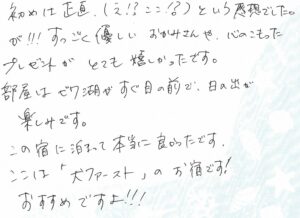 初めは正直、(え!?ここ!?)という感想でした。
が!!!すっごく優しいおかみさんや、心のこもった
プレゼントがとても嬉しかったです。
部屋はビワ湖がすぐ目の前で、日の出が
楽しみです。
この宿に泊まって本当に良かったです。
ここは「犬ファースト」のお宿です!
おすすめですよ!!!